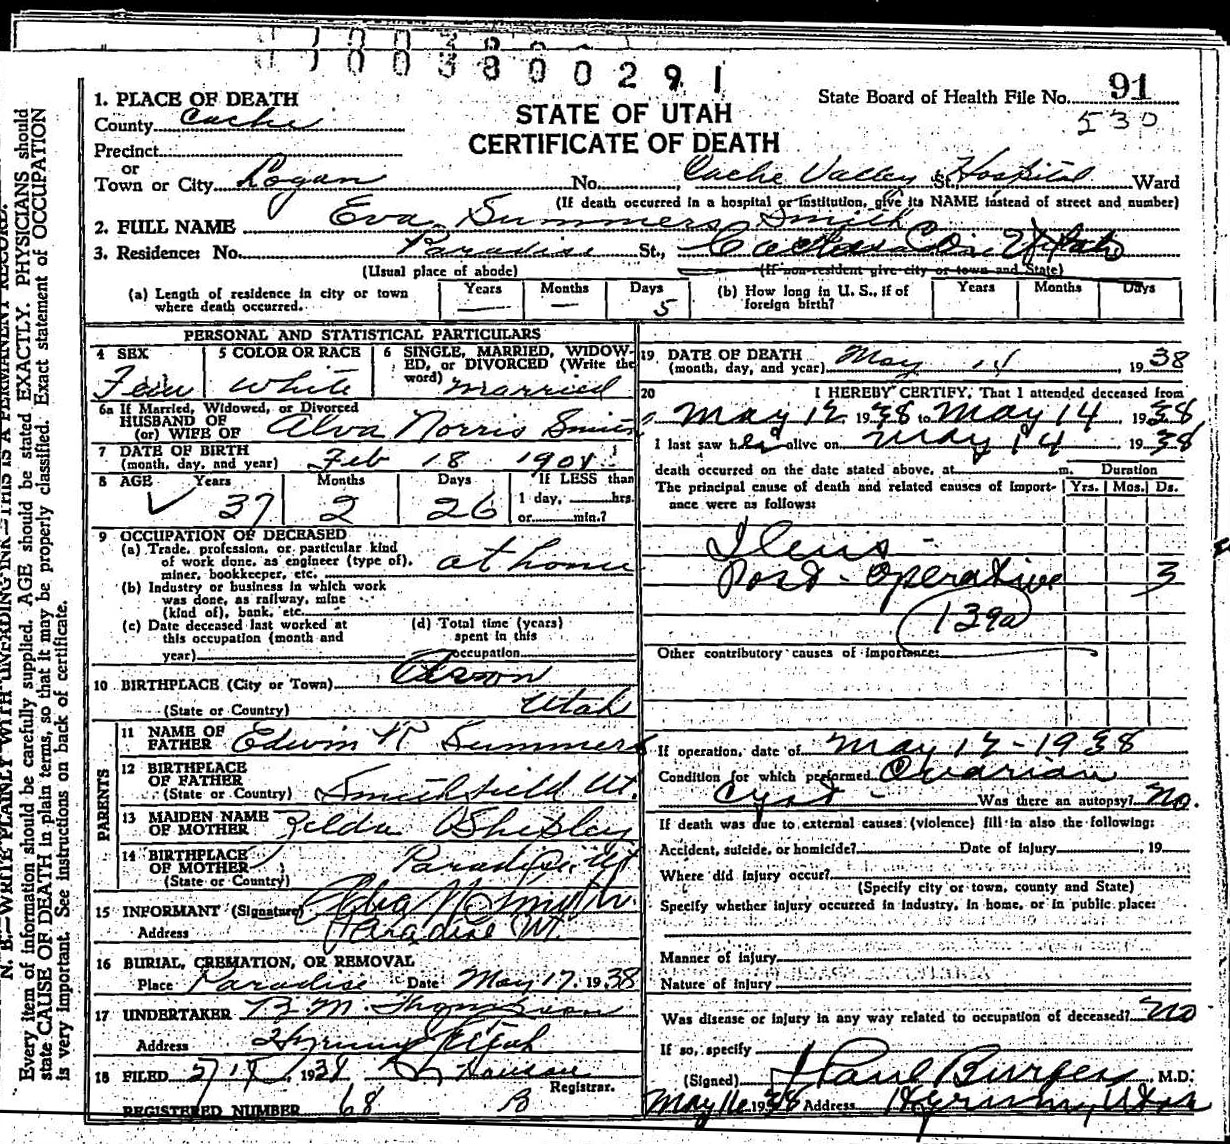 003800291
91
State Board of Health File No.
530
STATE OF UTAH
CERTIFICATE OF DEATH
1. PLACE OF DEATH
County Cache
Precinct
or
Town or City Logan No. Cache Valley St., Hospital Ward
(If death occurred in a hospital or institution, give its NAME instead of street and number)
2. FULL NAME Eva Summers Smith
3. Residence: No. Paradise St., Cache Co. Utah
(Usual place of abode) (If non-resident give city or town and State)
(a) Length of residence in city or town where death occurred. Years — Months — Days 5
(b) How long in U. S., if of foreign birth? Years Months Days
PERSONAL AND STATISTICAL PARTICULARS
4 SEX Fem
5 COLOR OR RACE White
6 SINGLE, MARRIED, WIDOWED, OR DIVORCED (Write the word) Married
6a If Married, Widowed, or Divorced
HUSBAND OF
(or) WIFE OF Alva Norris Smith
7 DATE OF BIRTH
(month, day, and year) Feb 18 1901
8 AGE Years 37 Months 2 Days 26 If LESS than
1 day, hrs.
or min.?
9 OCCUPATION OF DECEASED
(a) Trade, profession, or particular kind
of work done, as engineer (type of), at home
miner, bookkeeper, etc.
(b) Industry or business in which work
was done, as railway, mine
(kind of), bank, etc.
(c) Date deceased last worked at
this occupation (month and
year)
(d) Total time (years)
spent in this
occupation
10 BIRTHPLACE (City or Town)
(State or Country) Utah
PARENTS
11 NAME OF
FATHER Edwin Summers
12 BIRTHPLACE
OF FATHER
(State or Country) Smithfield Ut.
13 MAIDEN NAME
OF MOTHER Zelda Shipley
14 BIRTHPLACE
OF MOTHER Paradise, Ut
(State or Country)
15 INFORMANT (Signature) Alva N Smith
Address Paradise Ut.
16 BURIAL, CREMATION, OR REMOVAL
Place Paradise Date May 17, 1938
17 UNDERTAKER M. Thompson
Address Hyrum Utah
18 FILED 1938
Registrar.
REGISTERED NUMBER 68
19 DATE OF DEATH
(month, day, and year) May 14, 1938
20 I HEREBY CERTIFY, That I attended deceased from
May 12 1938 to May 14 1938
I last saw her alive on May 14 1938
death occurred on the date stated above, at m. Duration
The principal cause of death and related causes of importance were as follows: Yrs. Mos. Ds.
Ileus -
Post-Operative 3
139a
Other contributory causes of importance:
If operation, date of May 12-1938
Condition for which performed Ovarian
Cyst - Was there an autopsy? No.
If death was due to external causes (violence) fill in also the following:
Accident, suicide, or homicide? Date of injury , 19
Where did injury occur?
(Specify city or town, county and State)
Specify whether injury occurred in industry, in home, or in public place:
Manner of injury
Nature of injury
Was disease or injury in any way related to occupation of deceased? No
If so, specify
(Signed) Paul Burgess, M.D.
May 16 1938 Address Hyrum, Utah
N. B.—WRITE PLAINLY WITH UNFADING INK—THIS IS A PERMANENT RECORD.
Every item of information should be carefully supplied. AGE should be stated EXACTLY. PHYSICIANS should
state CAUSE OF DEATH in plain terms, so that it may be properly classified. Exact statement of OCCUPATION
is very important. See instructions on back of certificate.